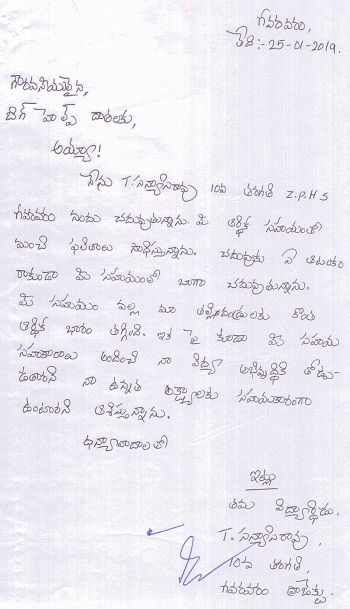 గవరవరం,
తేది:- 25-01-2019.
గౌరవనీయులైన,
బిగ్ హెల్ప్ దాతలకు,
అయ్యా!
నేను T. సన్యాసిరావు 10వ తరగతి Z.P.H.S
గవరవరం నందు చదువుతున్నాను. మీ ఆర్థిక సహాయంతో
మంచి ఫలితాలు సాధిస్తున్నాను. చదువుకు ఏ ఆటంకం
రాకుండా మీ సహాయంతో బాగా చదువుతున్నాను.
మీ సహాయం వల్ల మా తల్లిదండ్రులకు కొంత
ఆర్థిక భారం తగ్గింది. ఇక పై కూడా మీ సహాయ
సహకారాలు అందించి నా విద్యా అభివృద్ధికి తోడు-
ఉంటారని నా ఉన్నత లక్ష్యాలకు సహాయకారంగా
ఉంటారని ఆశిస్తున్నాను.
ధన్యావాదాలతో
ఇట్లు
తమ విద్యార్థి,
T. సన్యాసిరావు,
10వ తరగతి,
గవరవరం